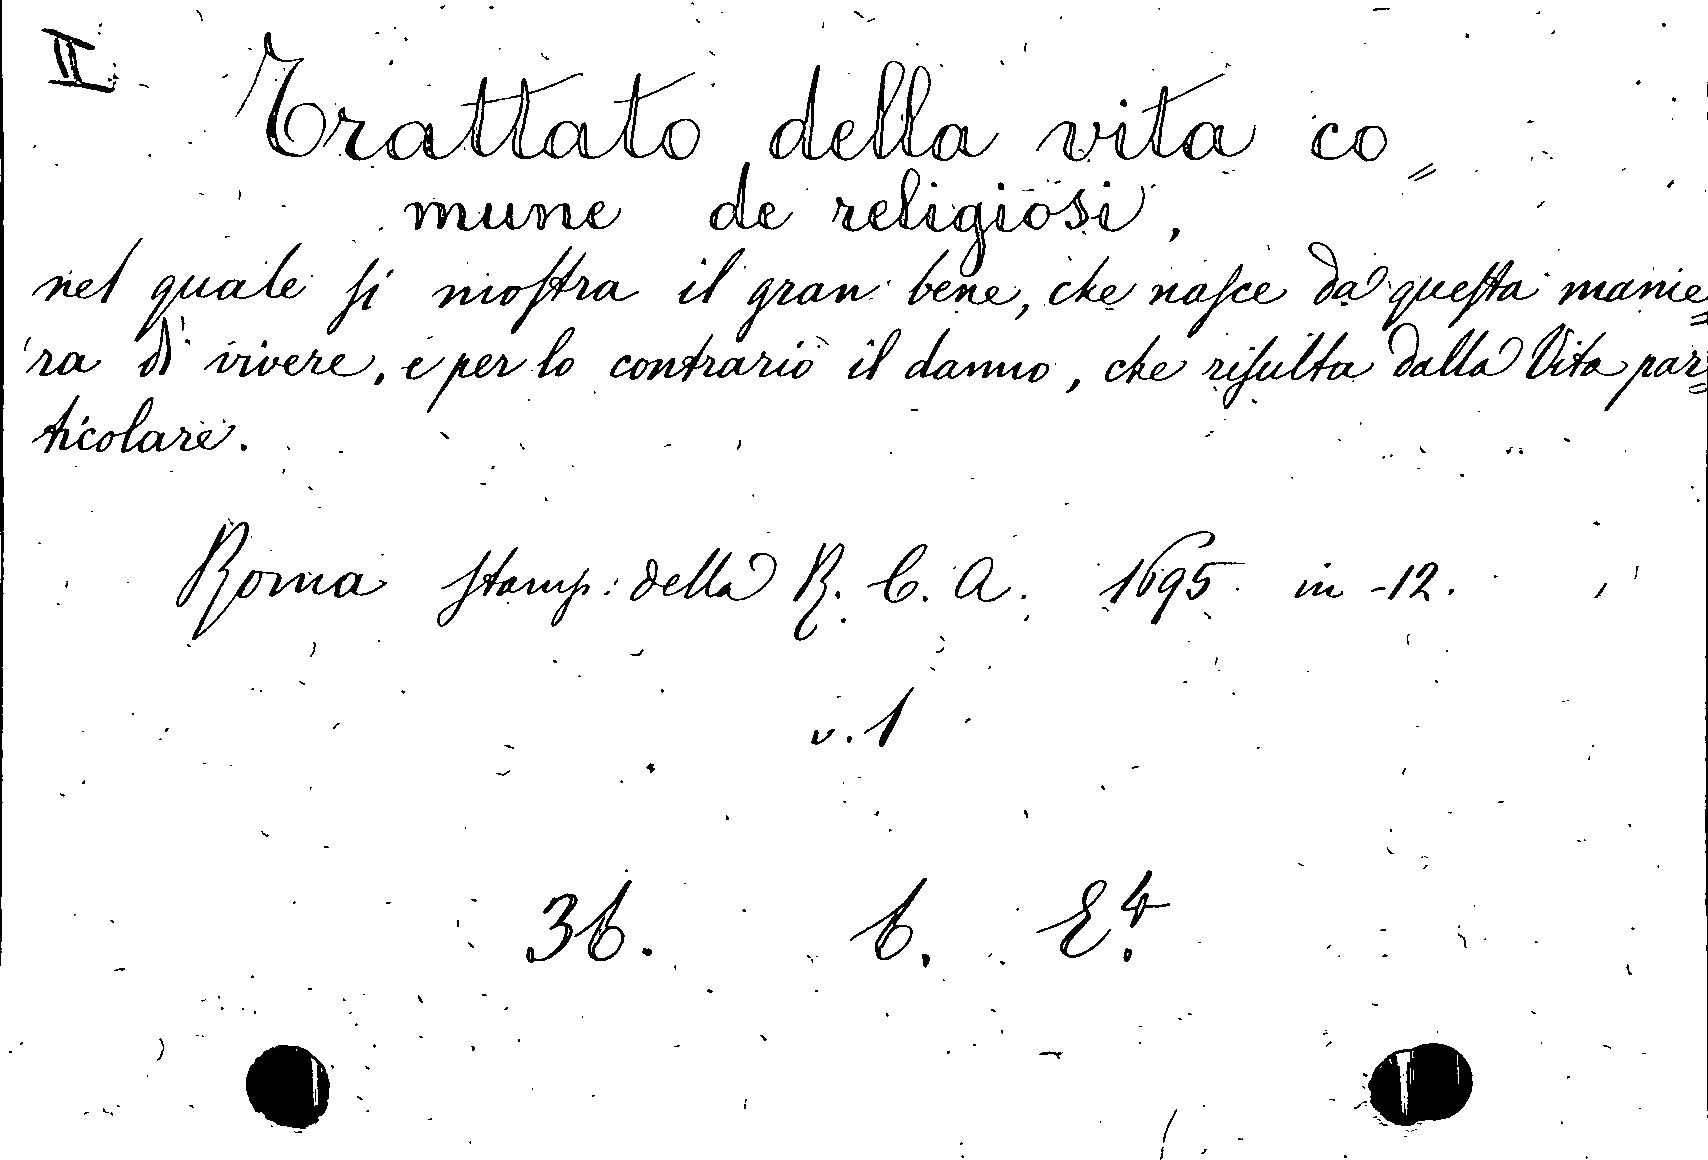 II
Trattato della vita co=
mune de religiosi,
nel quale si mostra il gran bene, che nasce da questa manie=
ra di vivere, e per lo contrario il danno, che risulta dalla Vita par=
ticolare.
Roma stamp: della R. C. A. 1695 in -12.
v. 1
36. 6. E⁴.